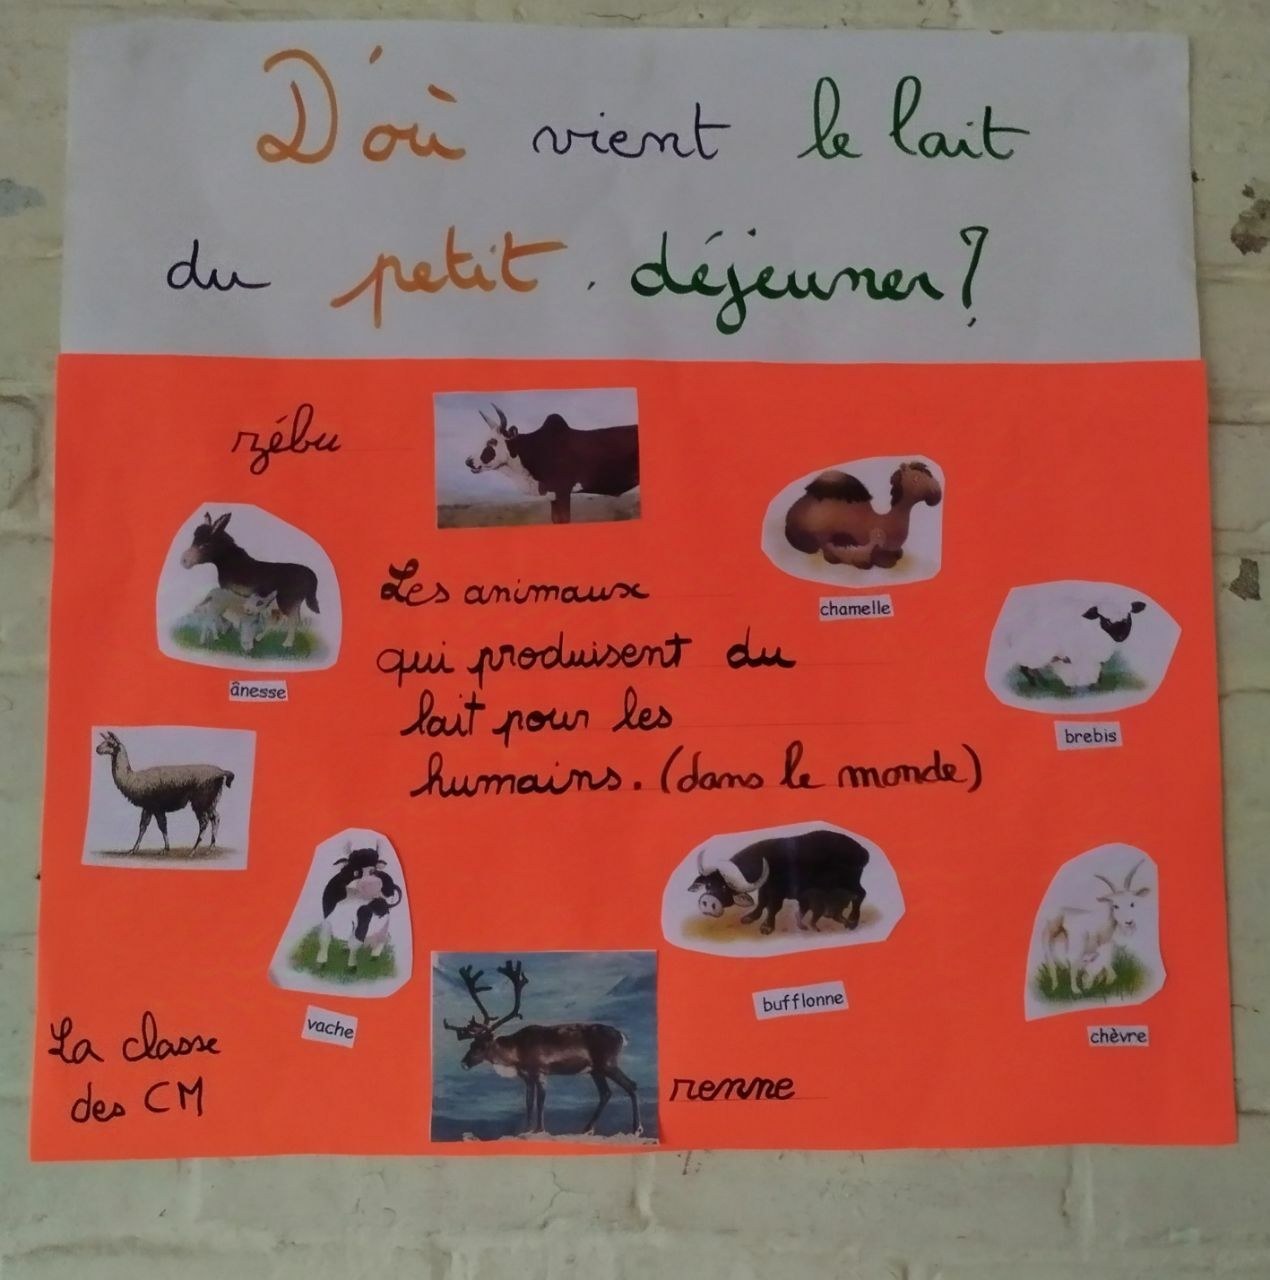 D'où vient le lait
du petit déjeuner?
zébu
chamelle
Les animaux
qui produisent du
lait pour les
humains. (dans le monde)
ânesse
brebis
vache
bufflonne
chèvre
renne
La classe
des CM